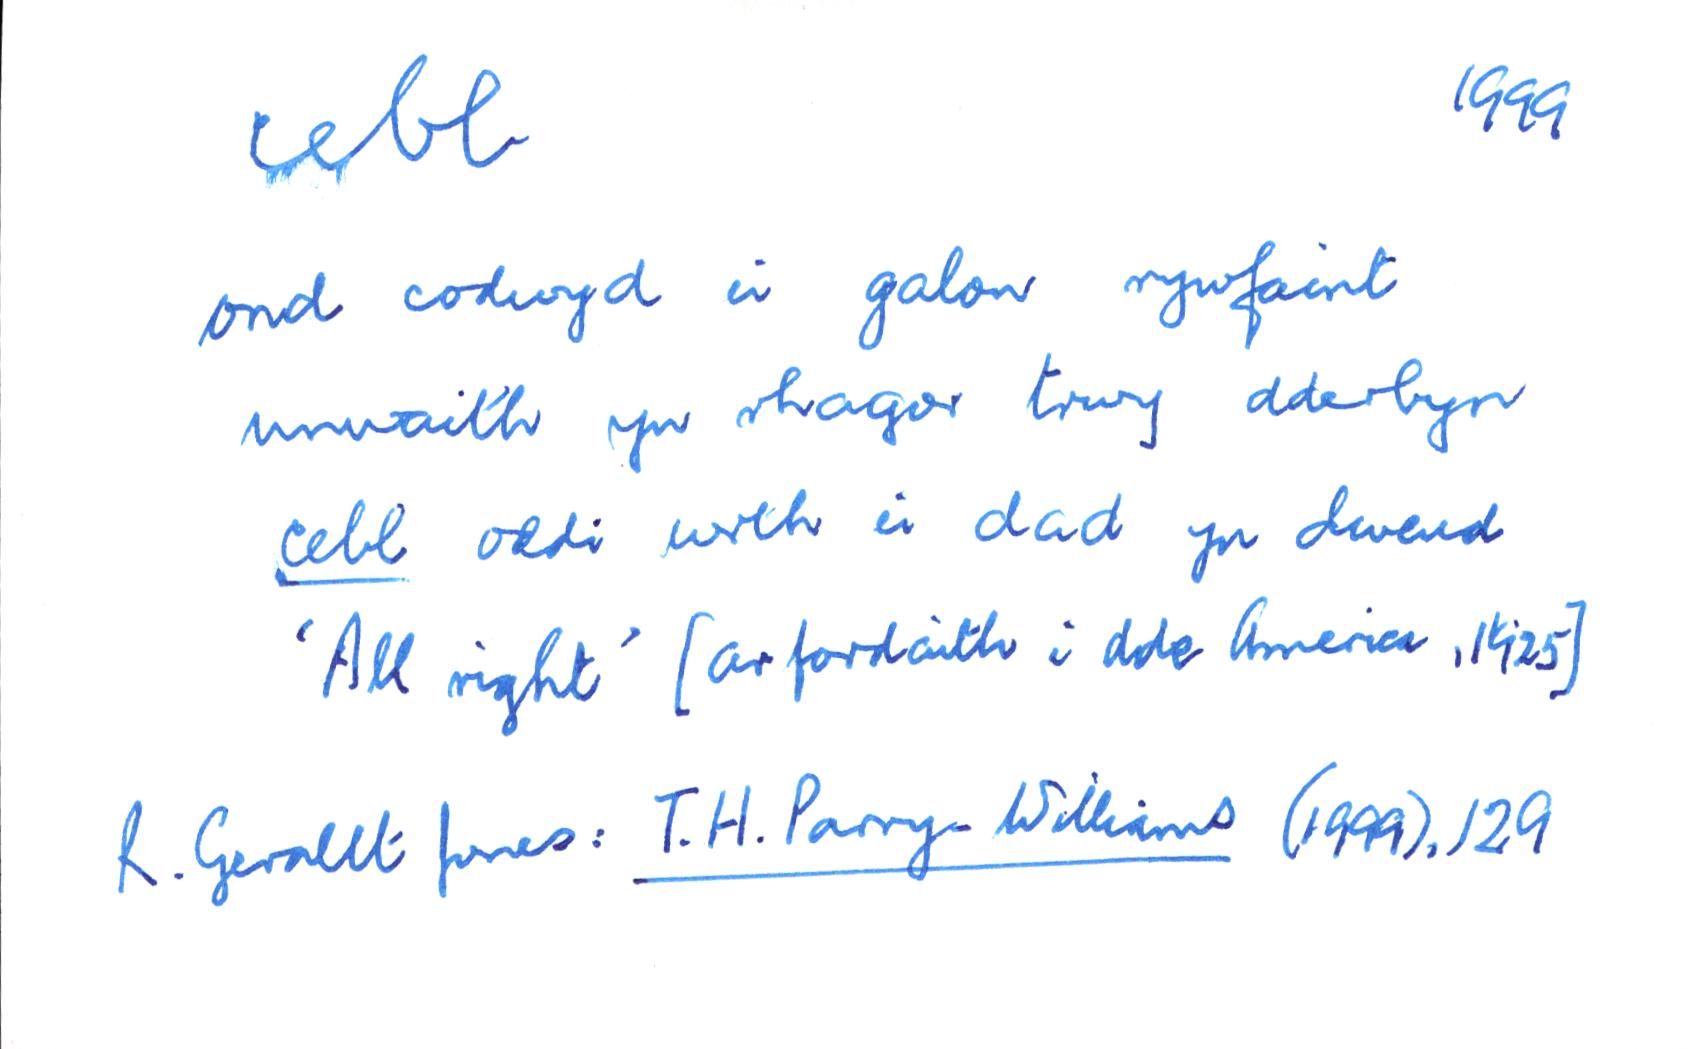 cebl 1999
ond codwyd ei galon rywfaint
unwaith yn rhagor trwy dderbyn
cebl oddi wrth ei dad yn dweud
'All right' [ar fordaith i dde America, 1925]
R. Gerallt Jones: T.H. Parry-Williams (1999), 129